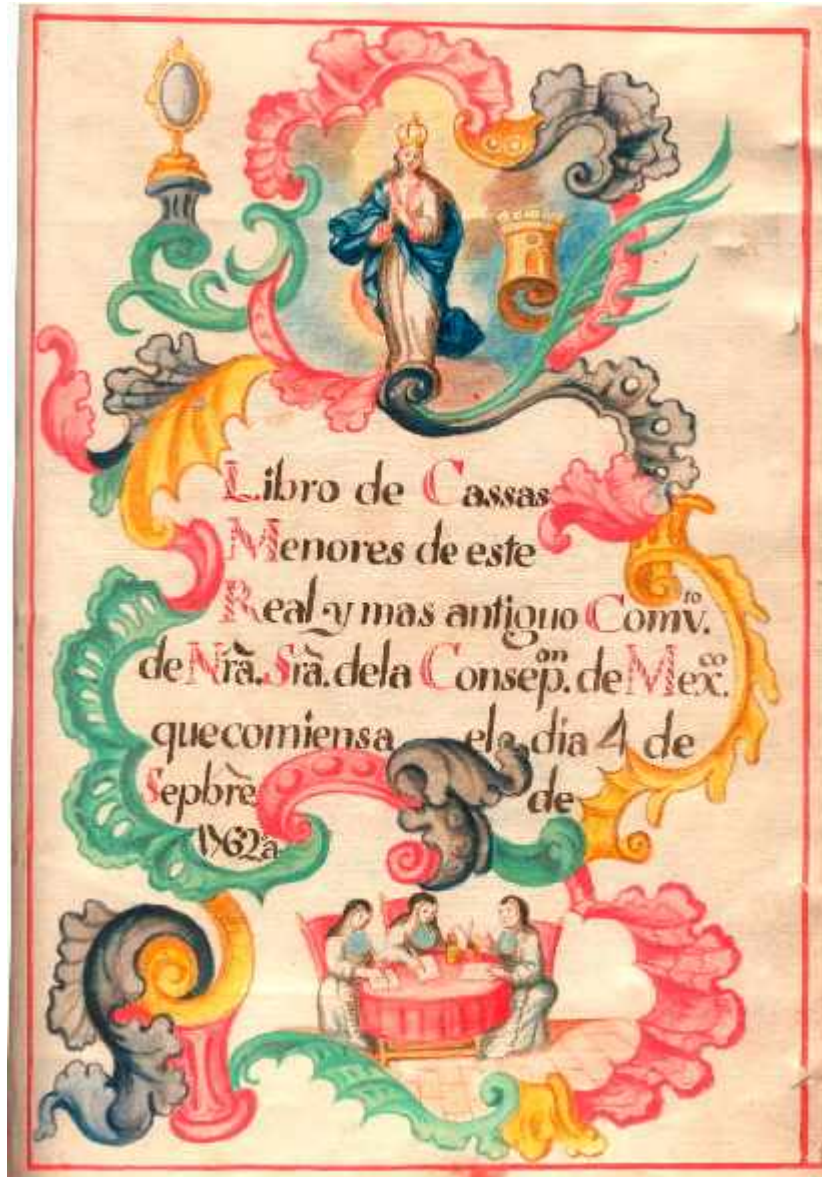 Libro de Cassas
Menores de este
Real y mas antiguo Comv.to
de Nrã. Srã. de la Consep.on de Mex.co
que comiensa el dia 4 de
Sepbrẽ de
1762 a